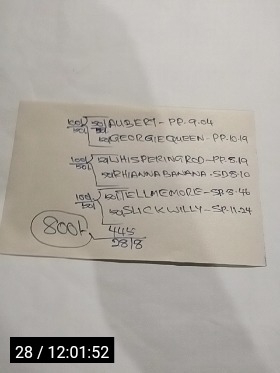 100/50/ 50/ AUBERT - PP. 9.04
50/ GEORGIEQUEEN - PP. 10.19
100/50/ 50/ WHISPERINGROD - PP. 8.19
50/ RHIANNABANANA. SD 8.10
100/50/ 50/ TELLMEMORE - SP. 8.46
50/ SLICKWILLY - SP. 11.24
800/. 445
28/8
28 / 12:01:52